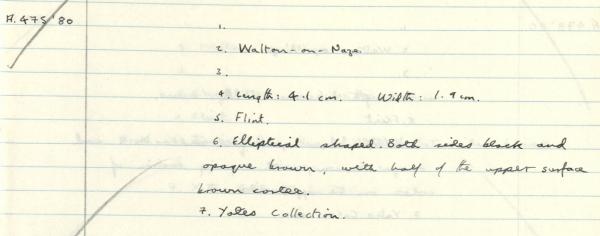 A.475'80
1.
2. Walton-on-Naze
3.
4. Length: 4.1 cm. Width: 1.9 cm.
5. Flint.
6. Elliptical shaped. Both sides black and
opaque brown, with half of the upper surface
brown cortex.
7. Yates Collection.